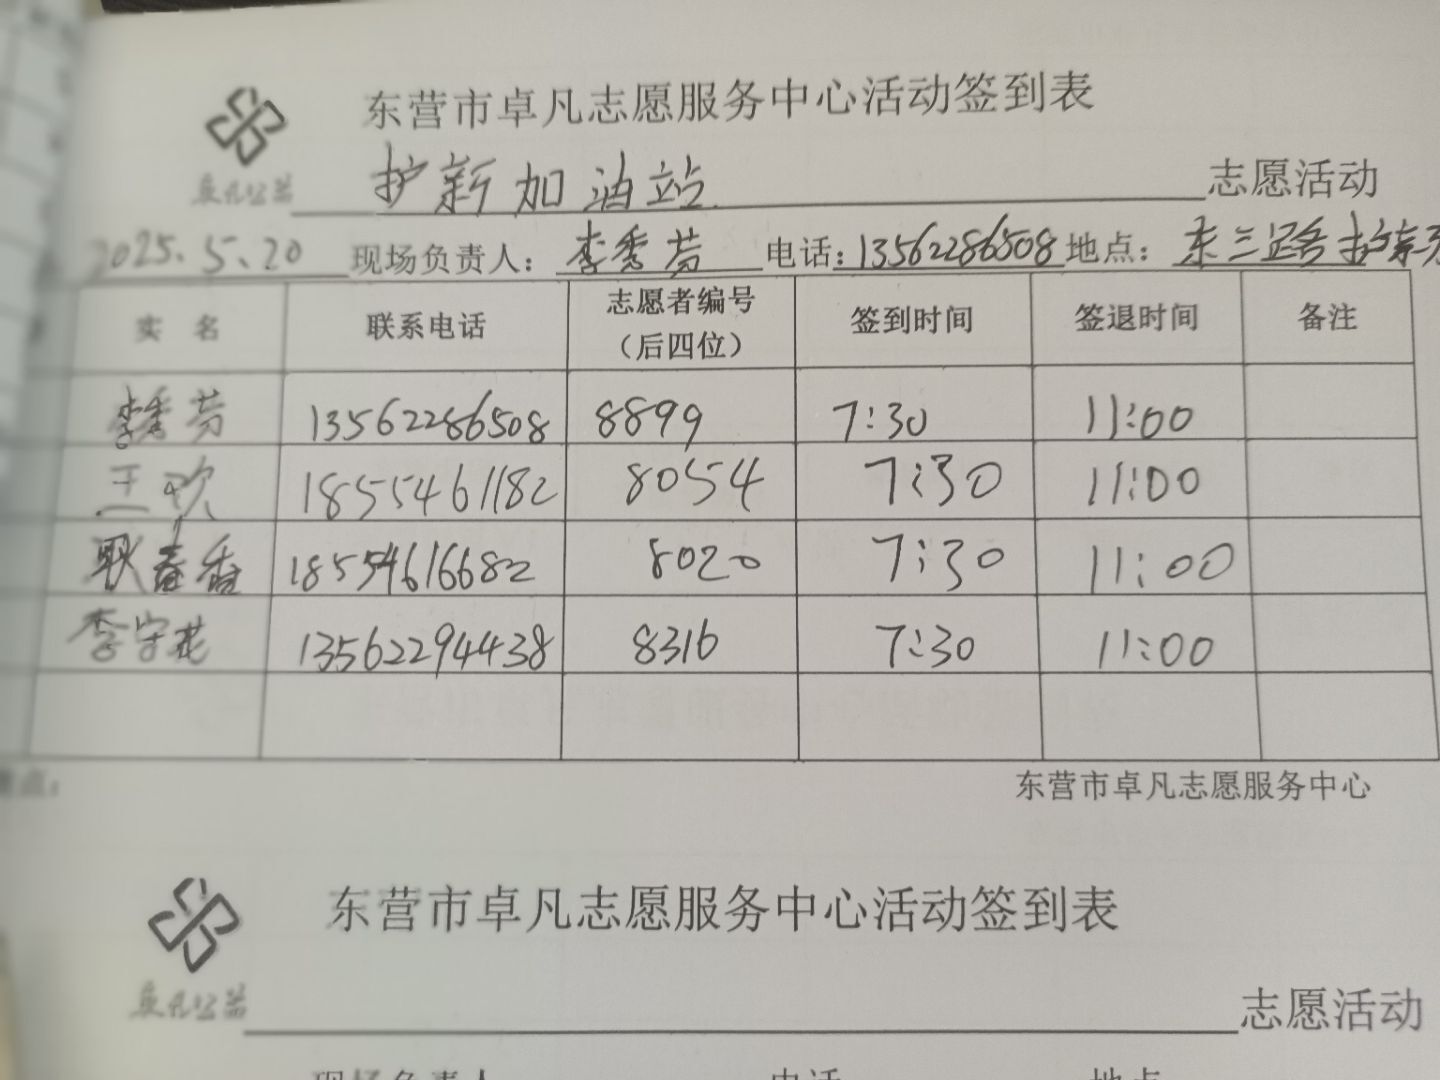 东营市卓凡志愿服务中心活动签到表
卓凡公益
护新加油站 志愿活动
2025.5.20 现场负责人：李秀芬 电话：13562286508 地点：东三路
实 名 联系电话 志愿者编号（后四位） 签到时间 签退时间 备注
李秀芬 13562286508 8899 7:30 11:00
王欢 1855461182 8054 7:30 11:00
耿春香 18554616682 8020 7:30 11:00
李守花 13562294438 8316 7:30 11:00
点：
东营市卓凡志愿服务中心
东营市卓凡志愿服务中心活动签到表
卓凡公益
志愿活动
现场负责人 电话 地点